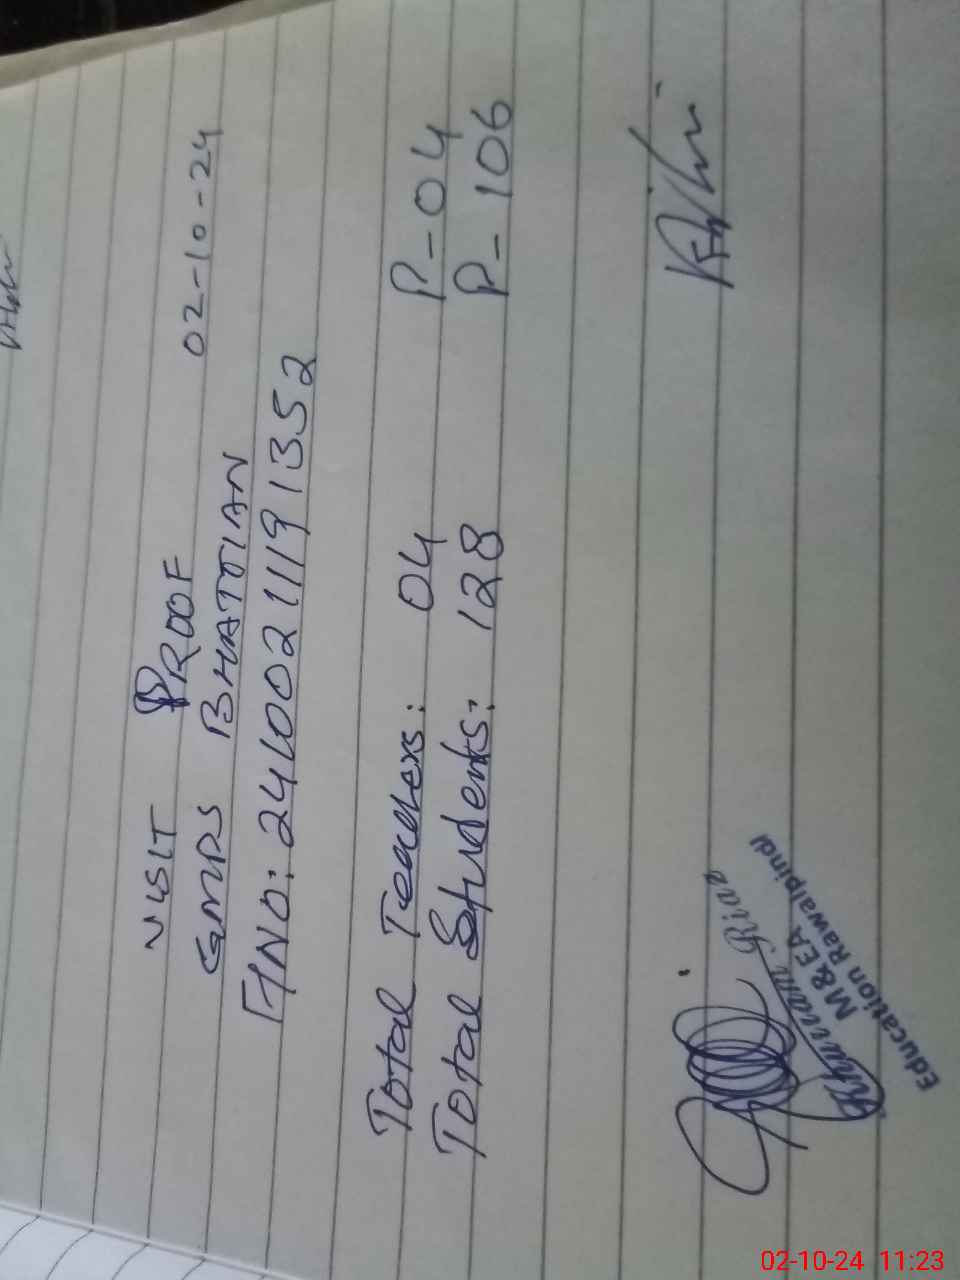 VISIT PROOF
GMPS BHATTIAN 02-10-24
FNO: 24100211191352
Total Teachers: 04 P-04
Total Students: 128 P-106
Khurram Riaz
M & EA
Education Rawalpindi
02-10-24 11:23